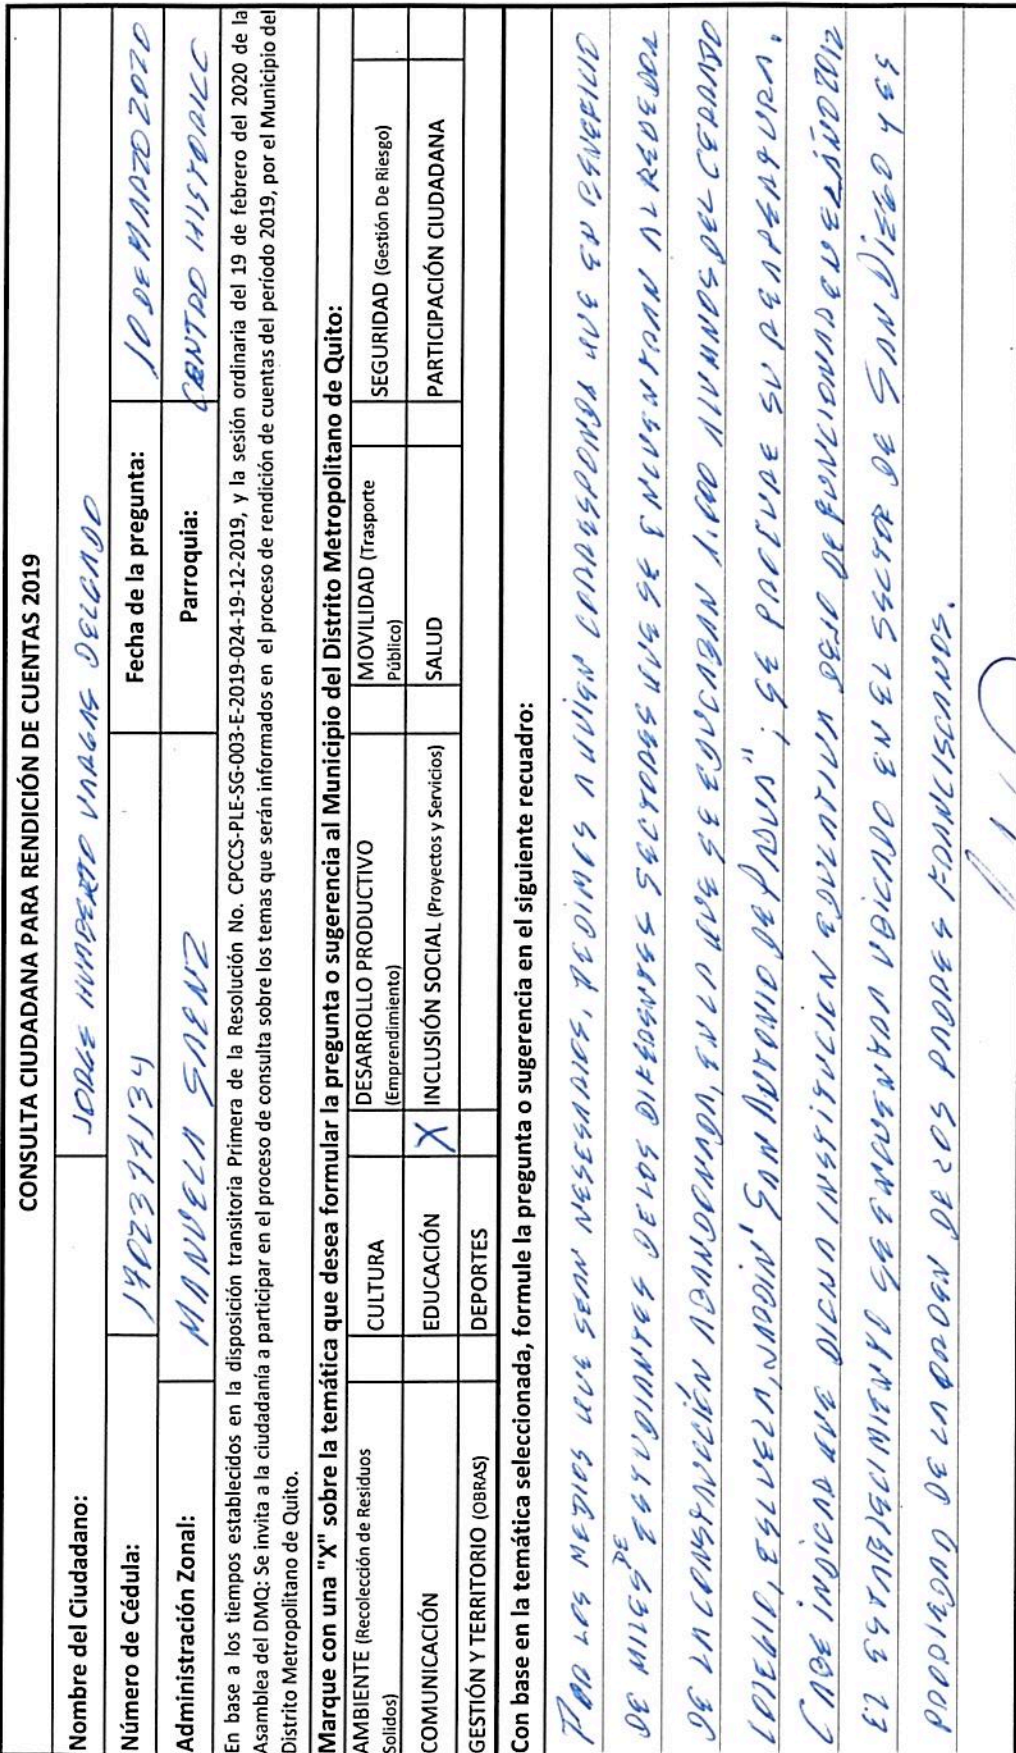 CONSULTA CIUDADANA PARA RENDICIÓN DE CUENTAS 2019
Nombre del Ciudadano: JORGE HUMBERTO VARGAS DELGADO
Número de Cédula: 1702377134 Fecha de la pregunta: 10 DE MARZO 2020
Administración Zonal: MANUELA SAENZ Parroquia: CENTRO HISTORICO
En base a los tiempos establecidos en la disposición transitoria Primera de la Resolución No. CPCCS-PLE-SG-003-E-2019-024-19-12-2019, y la sesión ordinaria del 19 de febrero del 2020 de la
Asamblea del DMQ: Se invita a la ciudadanía a participar en el proceso de consulta sobre los temas que serán informados en el proceso de rendición de cuentas del período 2019, por el Municipio del
Distrito Metropolitano de Quito.
Marque con una "X" sobre la temática que desea formular la pregunta o sugerencia al Municipio del Distrito Metropolitano de Quito:
AMBIENTE (Recolección de Residuos Solidos) CULTURA DESARROLLO PRODUCTIVO (Emprendimiento) MOVILIDAD (Trasporte Público) SEGURIDAD (Gestión De Riesgo)
COMUNICACIÓN EDUCACIÓN X INCLUSIÓN SOCIAL (Proyectos y Servicios) SALUD PARTICIPACIÓN CIUDADANA
GESTIÓN Y TERRITORIO (OBRAS) DEPORTES
Con base en la temática seleccionada, formule la pregunta o sugerencia en el siguiente recuadro:
POR LOS MEDIOS QUE SEAN NESESARIOS, PEDIMOS A QUIEN CORRESPONDA QUE EN BENEFICIO
DE MILES DE ESTUDIANTES DE LOS DIFERENTES SECTORES QUE SE ENCUENTRAN ALREDEDOR
DE LA CONSTRUCCIÓN ABANDONADA, EN LA QUE SE EDUCABAN 1.600 ALUMNOS DEL CERRADO
COLEGIO, ESCUELA, JARDIN "SAN ANTONIO DE PADUA"; SE PROCURE SU REAPERTURA.
CABE INDICAR QUE DICHA INSTITUCIÓN EDUCATIVA DEJO DE FUNCIONAR EN EL AÑO 2012
EL ESTABLECIMIENTO SE ENCUENTRA UBICADO EN EL SECTOR DE SAN DIEGO Y ES
PROPIEDAD DE LA ORDEN DE LOS PADRES FRANCISCANOS.